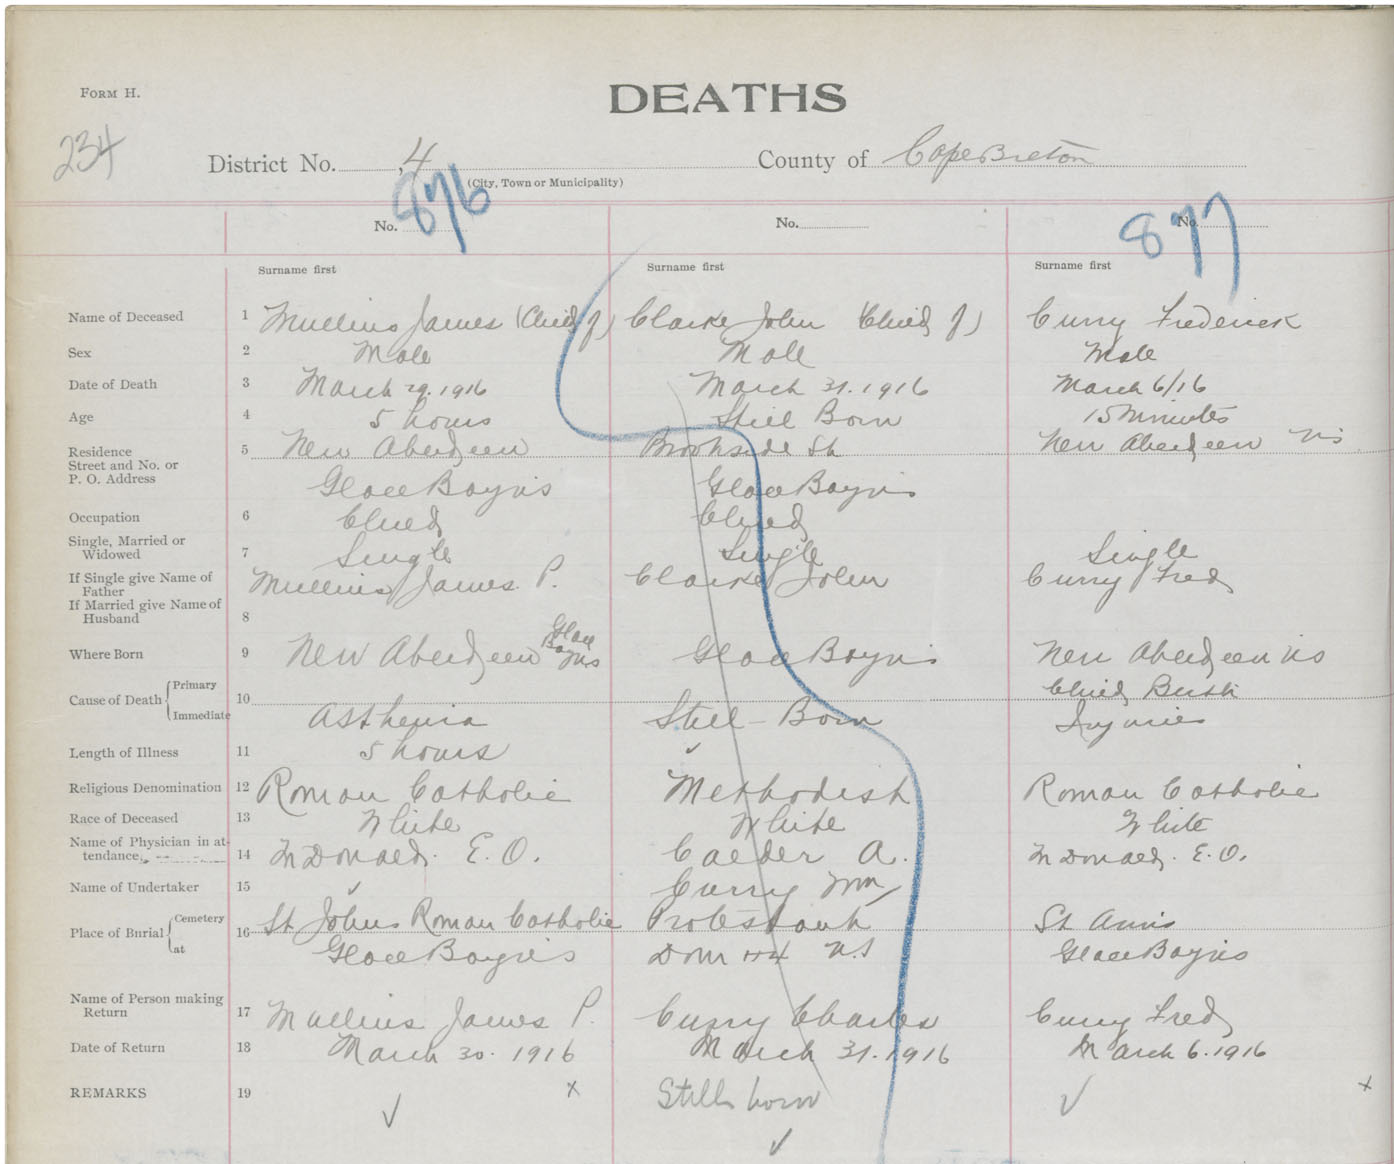 FORM H.
DEATHS
234
District No. 4 County of Cape Breton
(City, Town or Municipality)
No. 876 No. No. 877
Surname first Surname first Surname first
Name of Deceased 1 Mullins James (Child of) Clarke John (Child of) Curry Frederick
Sex 2 Male Male Male
Date of Death 3 March 29. 1916 March 31. 1916 March 6/16
Age 4 5 hours Still Born 15 Minutes
Residence 5 New Aberdeen Brookside St New Aberdeen NS
Street and No. or
P. O. Address Glace Bay NS Glace Bay NS
Occupation 6 Child Child
Single, Married or
Widowed 7 Single Single Single
If Single give Name of
Father Mullins James P. Clarke John Curry Fred
If Married give Name of
Husband 8
Where Born 9 New Aberdeen Glace Bay NS Glace Bay NS New Aberdeen NS
Cause of Death Primary 10 Child Birth
Immediate Asthenia Still-Born Injuries
Length of Illness 11 5 hours ✓
Religious Denomination 12 Roman Catholic Methodist Roman Catholic
Race of Deceased 13 White White White
Name of Physician in at-
tendance, 14 McDonald. E. O. Calder A. McDonald. E. O.
Name of Undertaker 15 ✓ Curry Wm
Place of Burial Cemetery 16 St Johns Roman Catholic Protestant St Anns
at Glace Bay NS Dom No 4 N.S Glace Bay NS
Name of Person making
Return 17 Mullins James P. Curry Charles Curry Fred
Date of Return 18 March 30. 1916 March 31. 1916 March 6. 1916
REMARKS 19 ✓ x Still born ✓ ✓ x